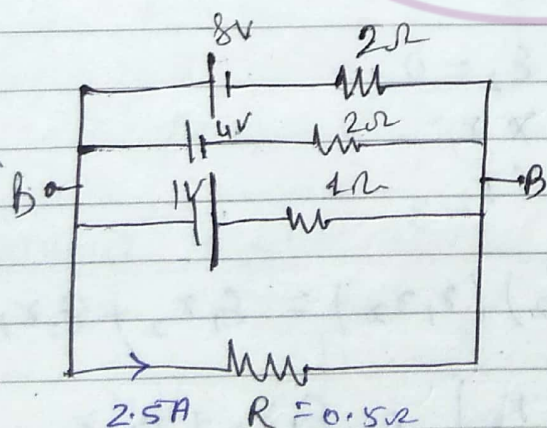 8V 2Ω
4V 2Ω
B 1V 1Ω B
2.5A R = 0.5Ω